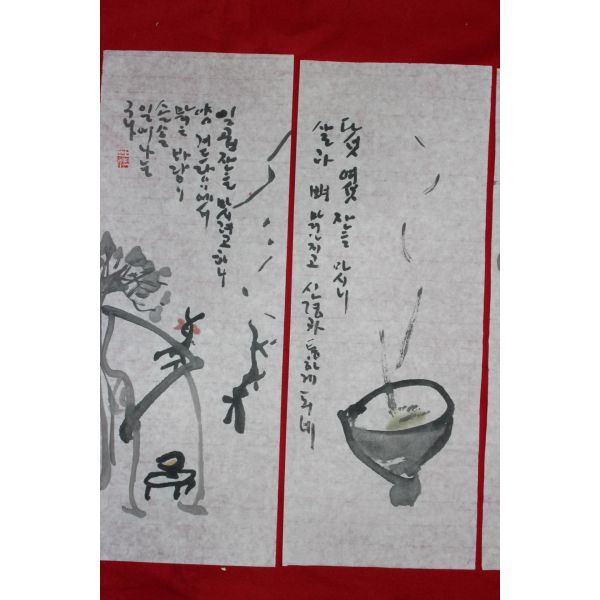 다섯 여섯 잔을 마시니
살과 뼈 맑아지고 신령과 통하게 되네
일곱잔을 마시려고 하니
양 겨드랑이에서
맑은 바람이
솔솔
일어나는
구나